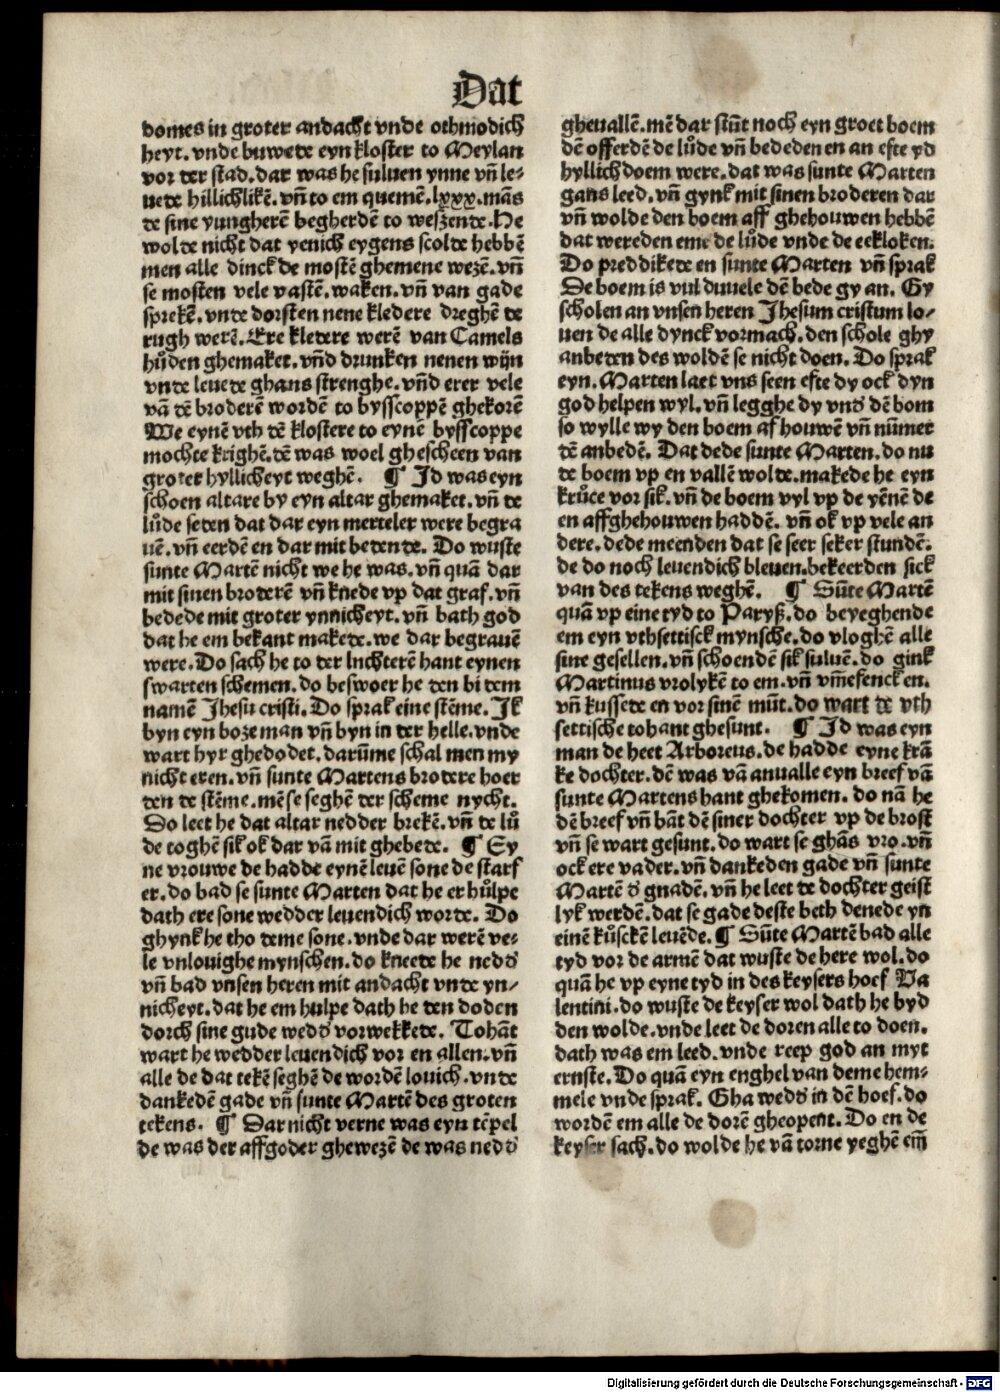 Dat
domes in groter andacht vnde othmodich
heyt. vnde buwede eyn kloster to Meylan
vor der stad. dar was he suluen ynne vñ le⸗
uede hillichlikē. vñ to em quemē. lxxx. mās
de sine yungherē begherdē to weszende. He
wolde nicht dat yenich eygens scolde hebbē
men alle dinck de mostē ghemene wezē. vñ
se mosten vele vastē. waken. vñ van gade
sprekē. vnde dorsten nene kledere dreghē de
rugh werē. Ere kledere werē van Camels
hůden ghemaket. vñd drunken nenen wijn
vnde leuede ghans strenghe. vñd erer vele
vā dē broderē wordē to bysscoppē ghekorē
We eynē vth dē klostere to eynē bysscoppe
mochte krighē. dē was woel ghescheen van
groter hyllicheyt weghē. ¶ Id was eyn
schoen altare by eyn altar ghemaket. vñ de
lůde seden dat dar eyn merteler were begra
uē. vñ eerdē en dar mit bedende. Do wuste
sunte Martē nicht we he was. vñ quā dar
mit sinen broderē vñ knede vp dat graf. vñ
bedede mit groter ynnicheyt. vñ bath god
dat he em bekant makede. we dar begrauē
were. Do sach he to der luchterē hant eynen
swarten schemen. do beswoer he den bi dem
namē Jhesu cristi. Do sprak eine stēme. Ik
byn eyn boze man vñ byn in der helle. vnde
wart hyr ghedodet. darūme schal men my
nicht eren. vñ sunte Martens brodere hoer
den de stēme. mē se seghē der scheme nycht.
Do leet he dat altar nedder brekē. vñ de lů
de toghē sik ok dar vā mit ghebede. ¶ Ey
ne vrouwe de hadde eynē leuē sone de starf
er. do bad se sunte Marten dat he er hůlpe
dath ere sone wedder leuendich worde. Do
ghynk he tho deme sone. vnde dar werē ve⸗
le vnlouighe mynschen. do kneede he nedď
vñ bad vnsen heren mit andacht vnde yn⸗
nicheyt. dat he em hulpe dath he den doden
dorch sine gude wedď vorwekkede. Tohāt
wart he wedder leuendich vor en allen. vñ
alle de dat tekē seghē de wordē louich. vnde
dankedē gade vñ sunte Martē des groten
tekens. ¶ Dar nicht verne was eyn tēpel
de was der affgoder ghewezē de was nedď
gheuallē. mē dar stūt noch eyn groet boem
dē offerdē de lůde vñ bededen en an efte yd
hyllichdoem were. dat was sunte Marten
gans leed. vñ gynk mit sinen broderen dar
vñ wolde den boem aff ghehouwen hebbē
dat wereden eme de lůde vnde de eekloken.
Do preddikede en sunte Marten vñ sprak
De boem is vul duuele dē bede gy an. Gy
scholen an vnsen heren Jhesum cristum lo⸗
uen de alle dynck vormach. den schole ghy
anbeden des woldē se nicht doen. Do sprak
eyn. Marten laet vns seen efte dy ock dyn
god helpen wyl. vñ legghe dy vnď dē bom
so wylle wy den boem af houwē vñ nūmer
dē anbedē. Dat dede sunte Marten. do nu
de boem vp en vallē wolde. makede he eyn
krůce vor sik. vñ de boem vyl vp de yēnē de
en affghehouwen haddē. vñ ok vp vele an
dere. dede meenden dat se seer seker stundē.
de do noch leuendich bleuen. bekeerden sick
van des tekens weghē. ¶ Sūte Martē
quā vp eine tyd to Paryß. do beyeghende
em eyn vthsettisck mynsche. do vloghē alle
sine gesellen. vñ schoendē sik suluē. do gink
Martinus vrolykē to em. vñ vmefenck en.
vñ kussede en vor sinē mūt. do wart de vth
settische tohant ghesunt. ¶ Id was eyn
man de heet Arboreus. de hadde eyne krā
ke dochter. dē was vā anualle eyn breef vā
sunte Martens hant ghekomen. do nā he
dē breef vñ bāt dē siner dochter vp de brost
vñ se wart gesunt. do wart se ghās vro. vñ
ock ere vader. vñ dankeden gade vñ sunte
Martē ď gnadē. vñ he leet de dochter geist
lyk werdē. dat se gade deste beth denede yn
einē kůsckē leuēde. ¶ Sūte Martē bad alle
tyd vor de armē dat wuste de here wol. do
quā he vp eyne tyd in des keysers hoef Va
lentini. do wuste de keyser wol dath he byd
den wolde. vnde leet de doren alle to doen.
dath was em leed. vnde reep god an myt
ernste. Do quā eyn enghel van deme hem⸗
mele vnde sprak. Gha wedď in dē hoef. do
wordē em alle de dorē gheopent. Do en de
keyser sach. do wolde he vā torne yeghē em̄
Digitalisierung gefördert durch die Deutsche Forschungsgemeinschaft - DFG